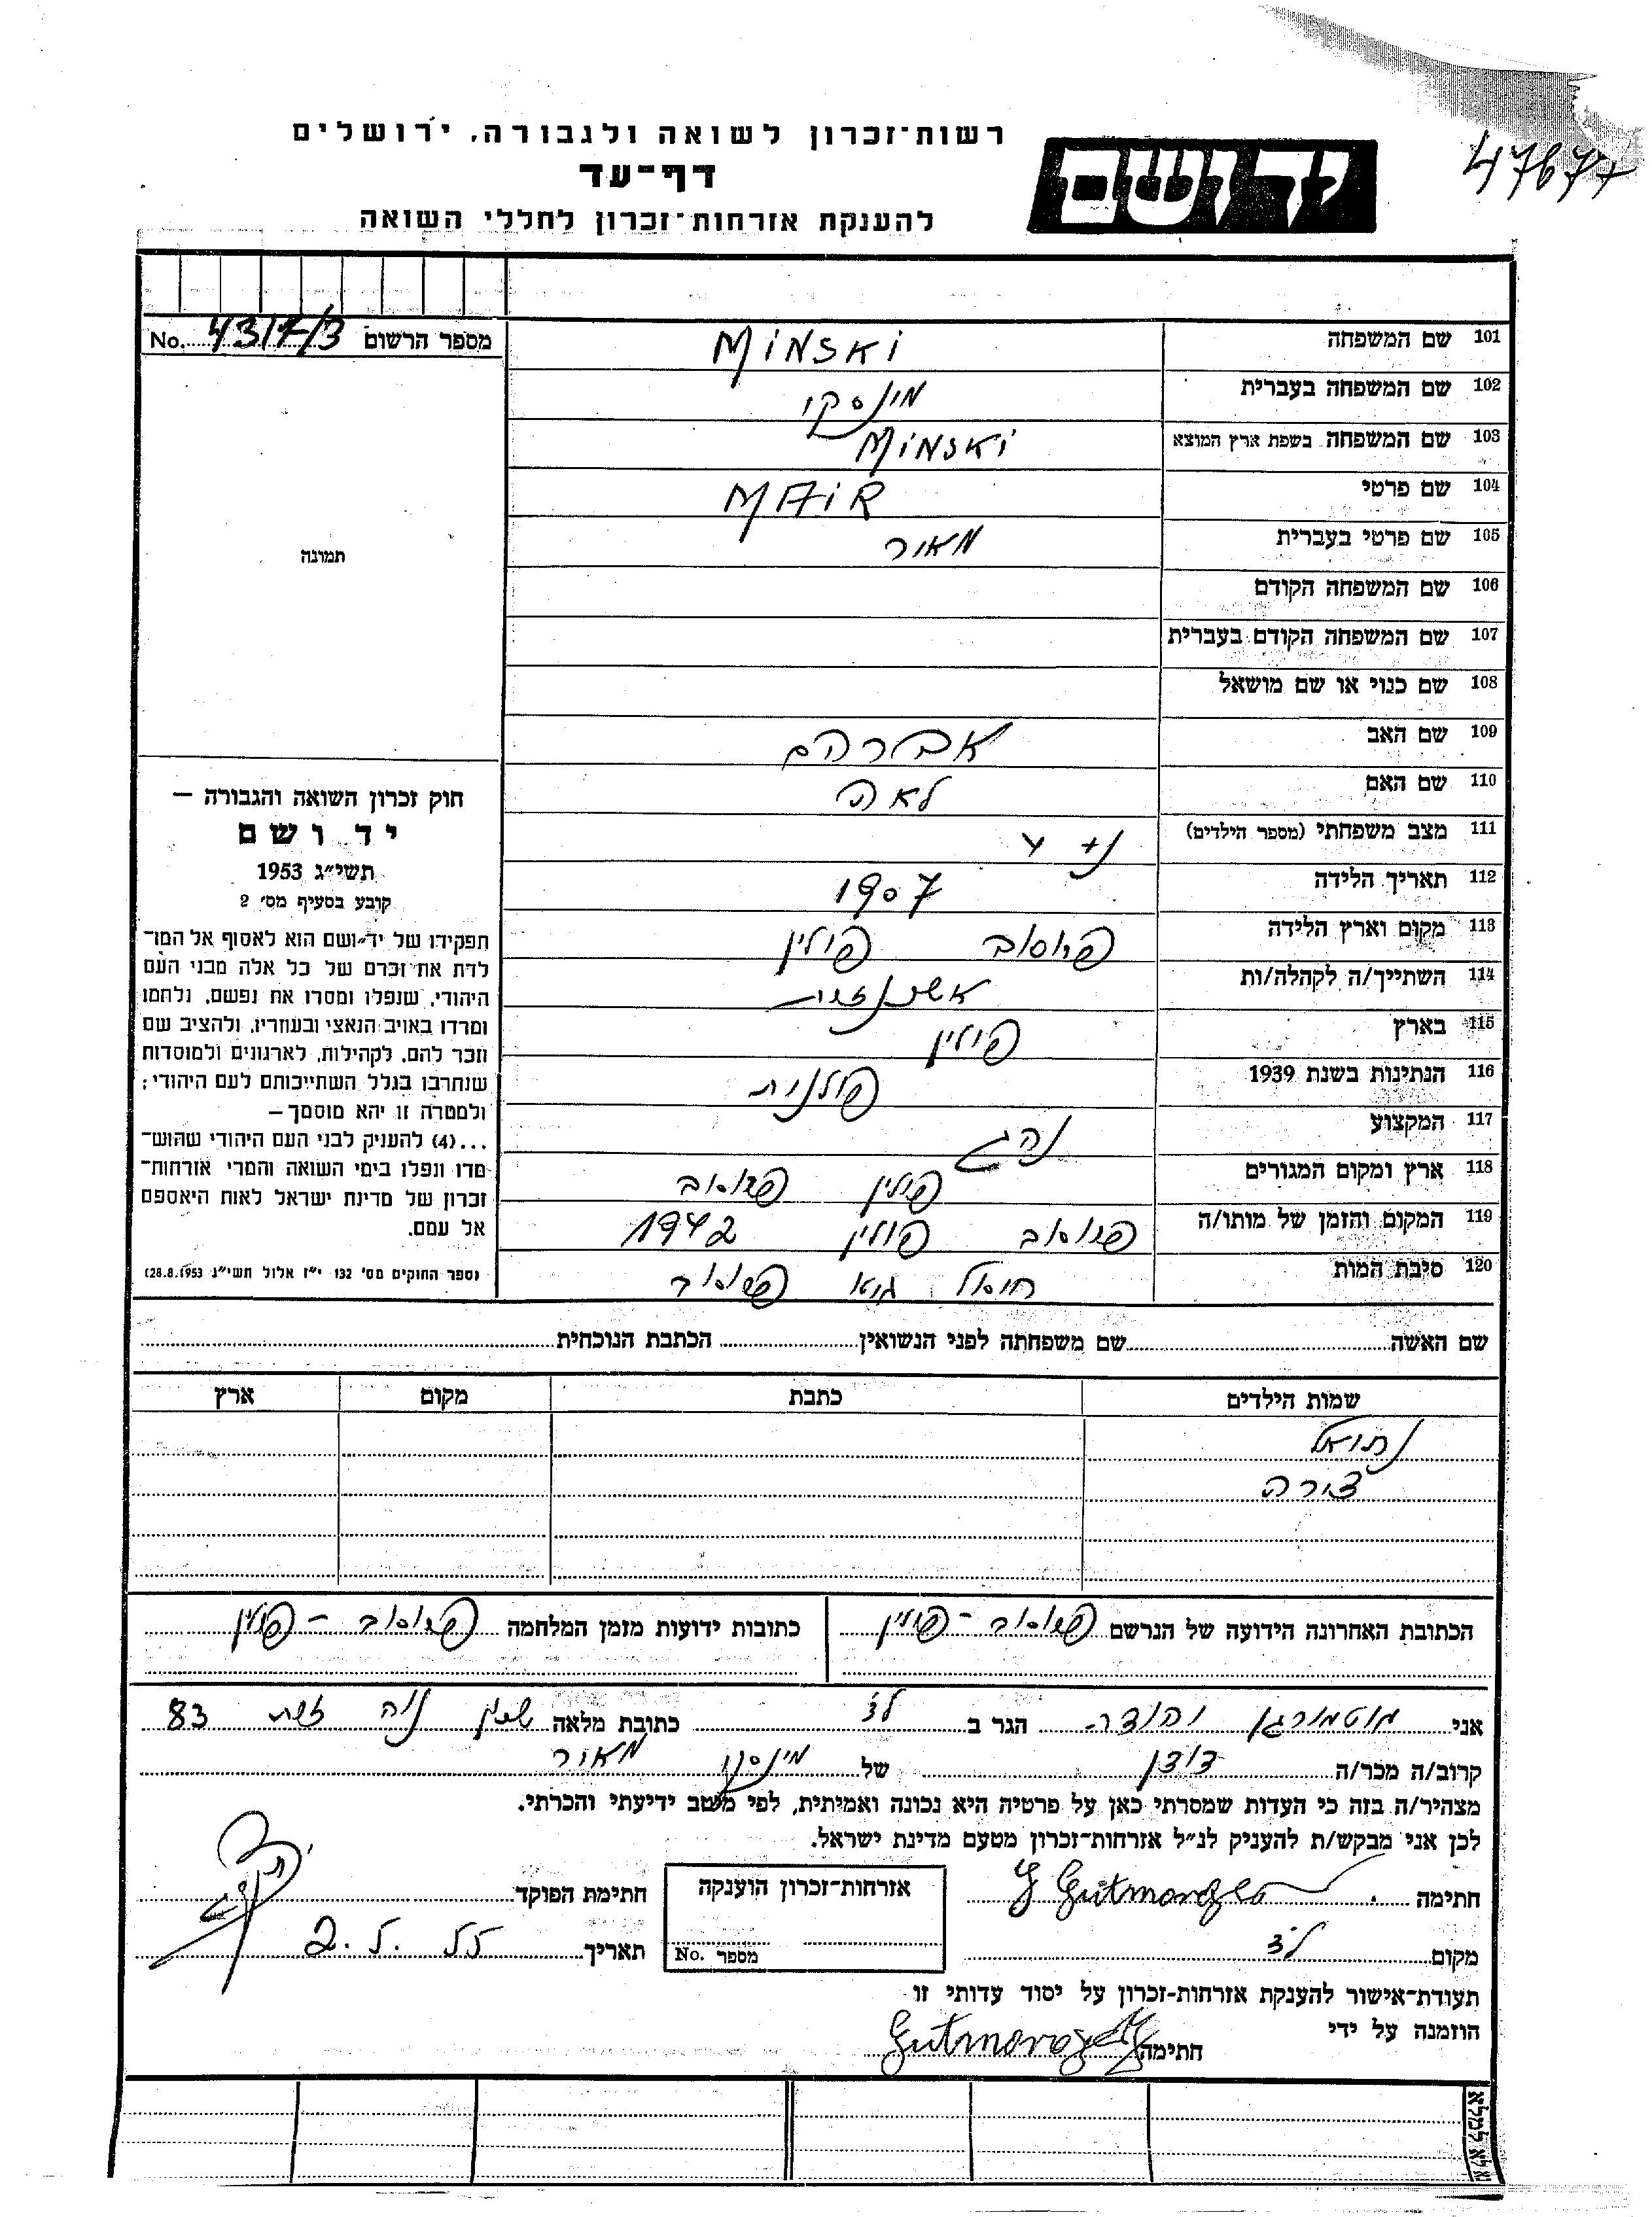 רשות-זכרון לשואה ולגבורה, ירושלים
דף-עד
להענקת אזרחות-זכרון לחללי השואה
יד ושם
47677
מספר הרשום No. 4317/3
תמונה
101 שם המשפחה MINSKI
102 שם המשפחה בעברית מינסקי
103 שם המשפחה בשפת ארץ המוצא MINSKI
104 שם פרטי MAIR
105 שם פרטי בעברית מאיר
106 שם המשפחה הקודם
107 שם המשפחה הקודם בעברית
108 שם כנוי או שם מושאל
109 שם האב אברהם
110 שם האם לאה
111 מצב משפחתי (מספר הילדים) נ +
112 תאריך הלידה 1907
113 מקום וארץ הלידה פולין
114 השתייך/ה לקהלה/ות אשכנזית
115 בארץ פולין
116 הנתינות בשנת 1939 פולנית
117 המקצוע נהג
118 ארץ ומקום המגורים פולין
119 המקום והזמן של מותו/ה פולין 1942
120 סיבת המות חיסול גיטו
חוק זכרון השואה והגבורה —
יד ושם
תשי״ג 1953
קובע בסעיף מס׳ 2
תפקידו של יד-ושם הוא לאסוף אל המו־
לדת את זכרם של כל אלה מבני העם
היהודי, שנפלו ומסרו את נפשם, נלחמו
ומרדו באויב הנאצי ובעוזריו, ולהציב שם
וזכר להם, לקהילות, לארגונים ולמוסדות
שנחרבו בגלל השתייכותם לעם היהודי;
ולמטרה זו יהא מוסמך —
...(4) להענק לבני העם היהודי שהוש־
מדו ונפלו בימי השואה והמרי אזרחות־
זכרון של מדינת ישראל לאות היאספם
אל עמם.
(ספר החוקים מס׳ 132 י״ז אלול תשי״ג 28.8.1953)
שם האשה שם משפחתה לפני הנשואין הכתבת הנוכחית
שמות הילדים כתבת מקום ארץ
שרה
הכתובת האחרונה הידועה של הנרשם פולין
כתובות ידועות מזמן המלחמה פולין
אני הגר ב כתובת מלאה שכון נוה 83
קרוב/ה מכר/ה דודן של מינסקי מאיר
מצהיר/ה בזה כי העדות שמסרתי כאן על פרטיה היא נכונה ואמיתית, לפי מיטב ידיעתי והכרתי.
לכן אני מבקש/ת להעניק לנ״ל אזרחות-זכרון מטעם מדינת ישראל.
חתימה
אזרחות-זכרון הוענקה
מספר No.
חתימת הפוקד
מקום
תאריך 2.5.55
תעודת-אישור להענקת אזרחות-זכרון על יסוד עדותי זו
הוזמנה על ידי
חתימה
נא לא למלא